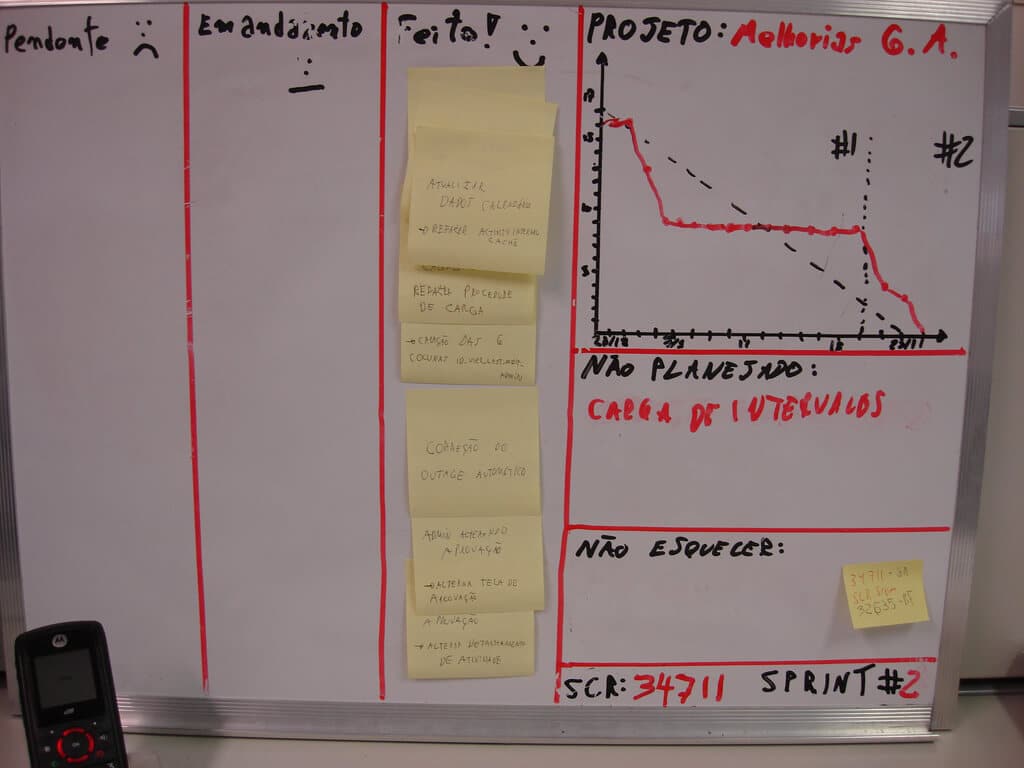 Pendente
Em andamento
Feito!
PROJETO: Melhorias G.A.
#1
#2
ATUALIZAR
CALENDÁRIO
REFAZER
CACHE
REFAZER PROCEDURE
DE CARGA
DAS 6
COLUNAS
CORREÇÃO DO
OUTAGE AUTOMÁTICO
ADMIN ALTERANDO
APROVAÇÃO
→ALTERAR TELA DE
APROVAÇÃO
APROVAÇÃO
→ALTERAR DETALHAMENTO
DE ATIVIDADE
NÃO PLANEJADO:
CARGA DE INTERVALOS
NÃO ESQUECER:
34711-
32635-
SCR: 34711 SPRINT #2